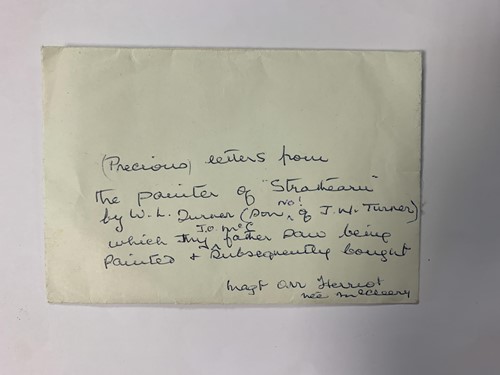 (Precious) letters from
the painter of "Strathearn"
by W. L. Turner (Son ^ No! of J. W. Turner)
which my ^ J.O. McC father saw being
painted + subsequently bought
Magt Orr Herriot
née McCleery